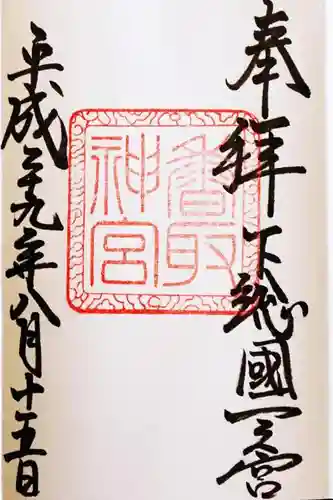 奉拝下総國一之宮
香取
神宮
平成二十九年八月十五日